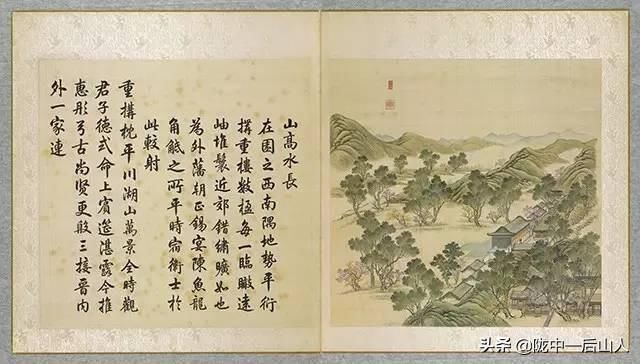 山髙水長
在園之西南隅地勢平衍
搆重樓數楹每一臨瞰遠
岫堆鬟近郊錯繡曠如也
為外藩朝正錫宴陳魚龍
角觝之所平時宿衛士於
此較射
重構枕平川湖山萬景全時觀
君子德式命上賓筵湛露今推
惠彤弓古尚賢更殷三接晉內
外一家連
头条 @陇中一后山人